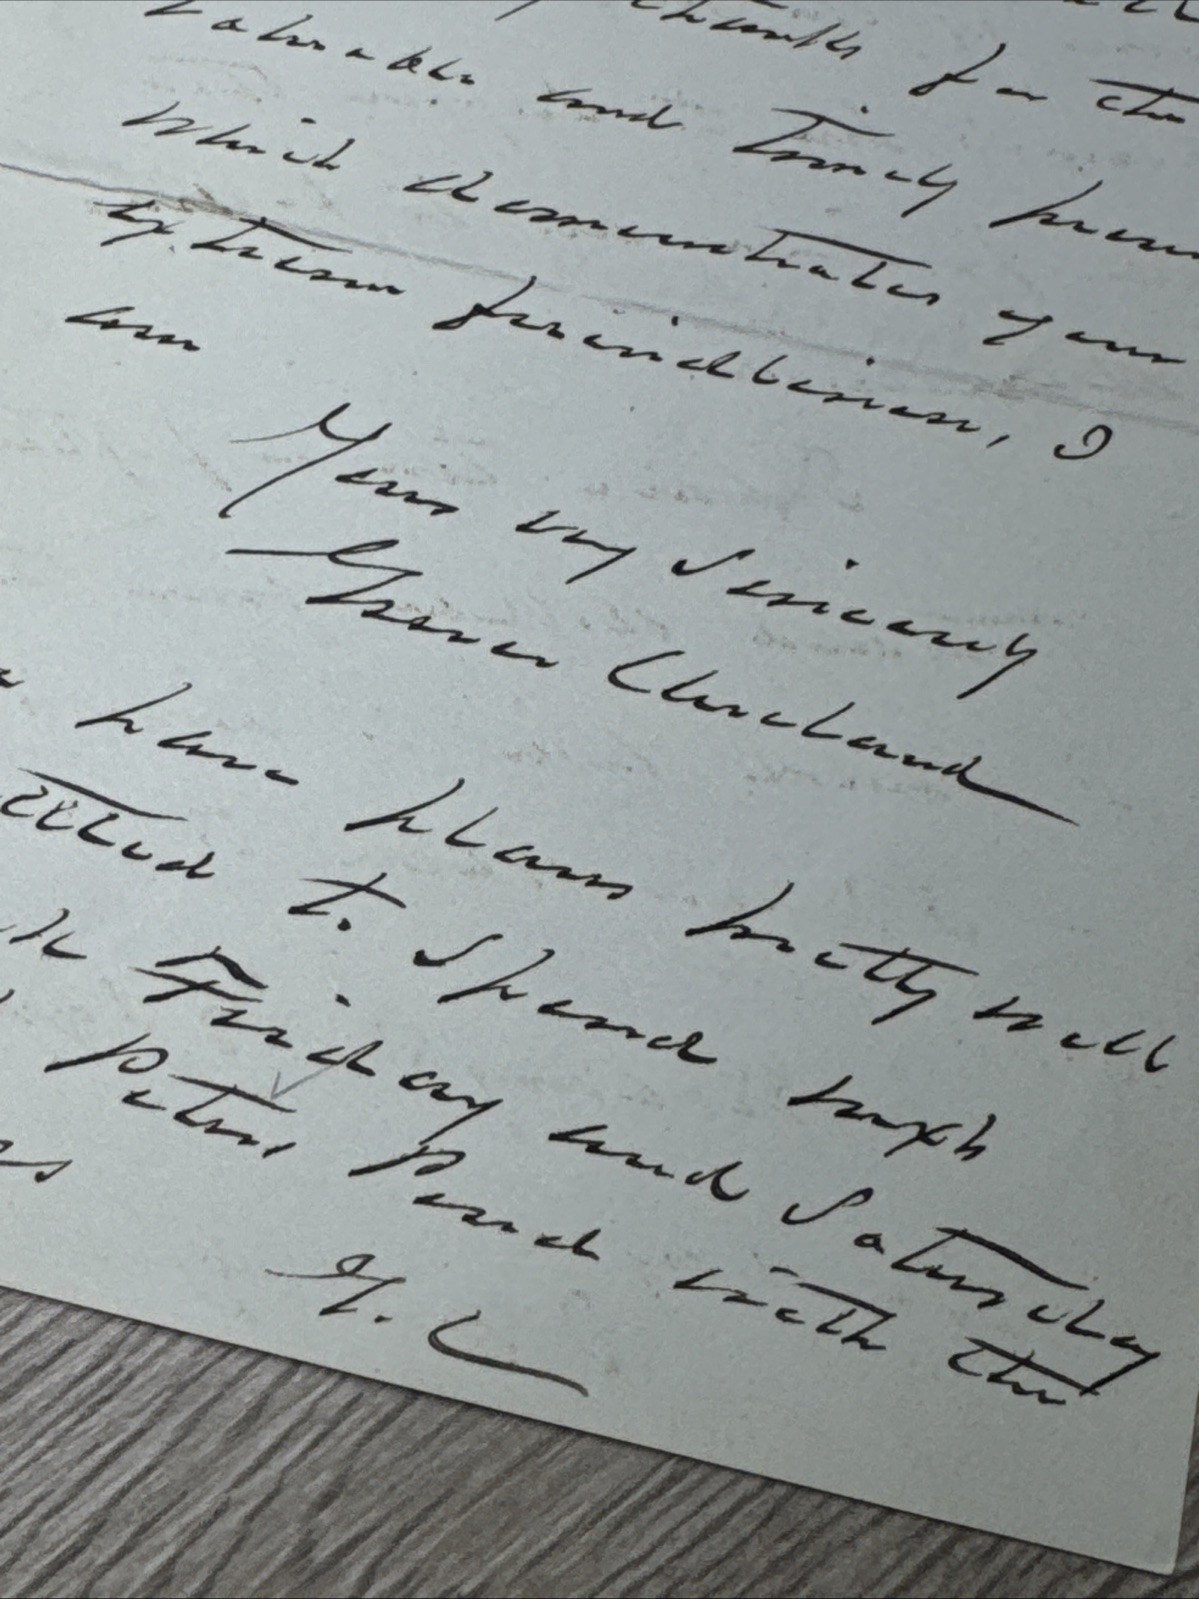 thanks for the
valuable and timely
which demonstrates your
extreme friendliness, I
am
Yours very sincerely
Grover Cleveland
have plans pretty well
settled to spend next
Friday and Saturday
Peters Pond with the
G. C.